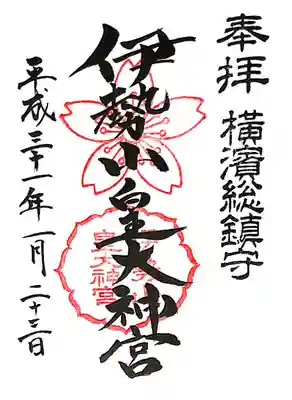 奉拝 横濱総鎮守
伊勢山皇大神宮
平成三十一年一月二十三日
皇大神宮